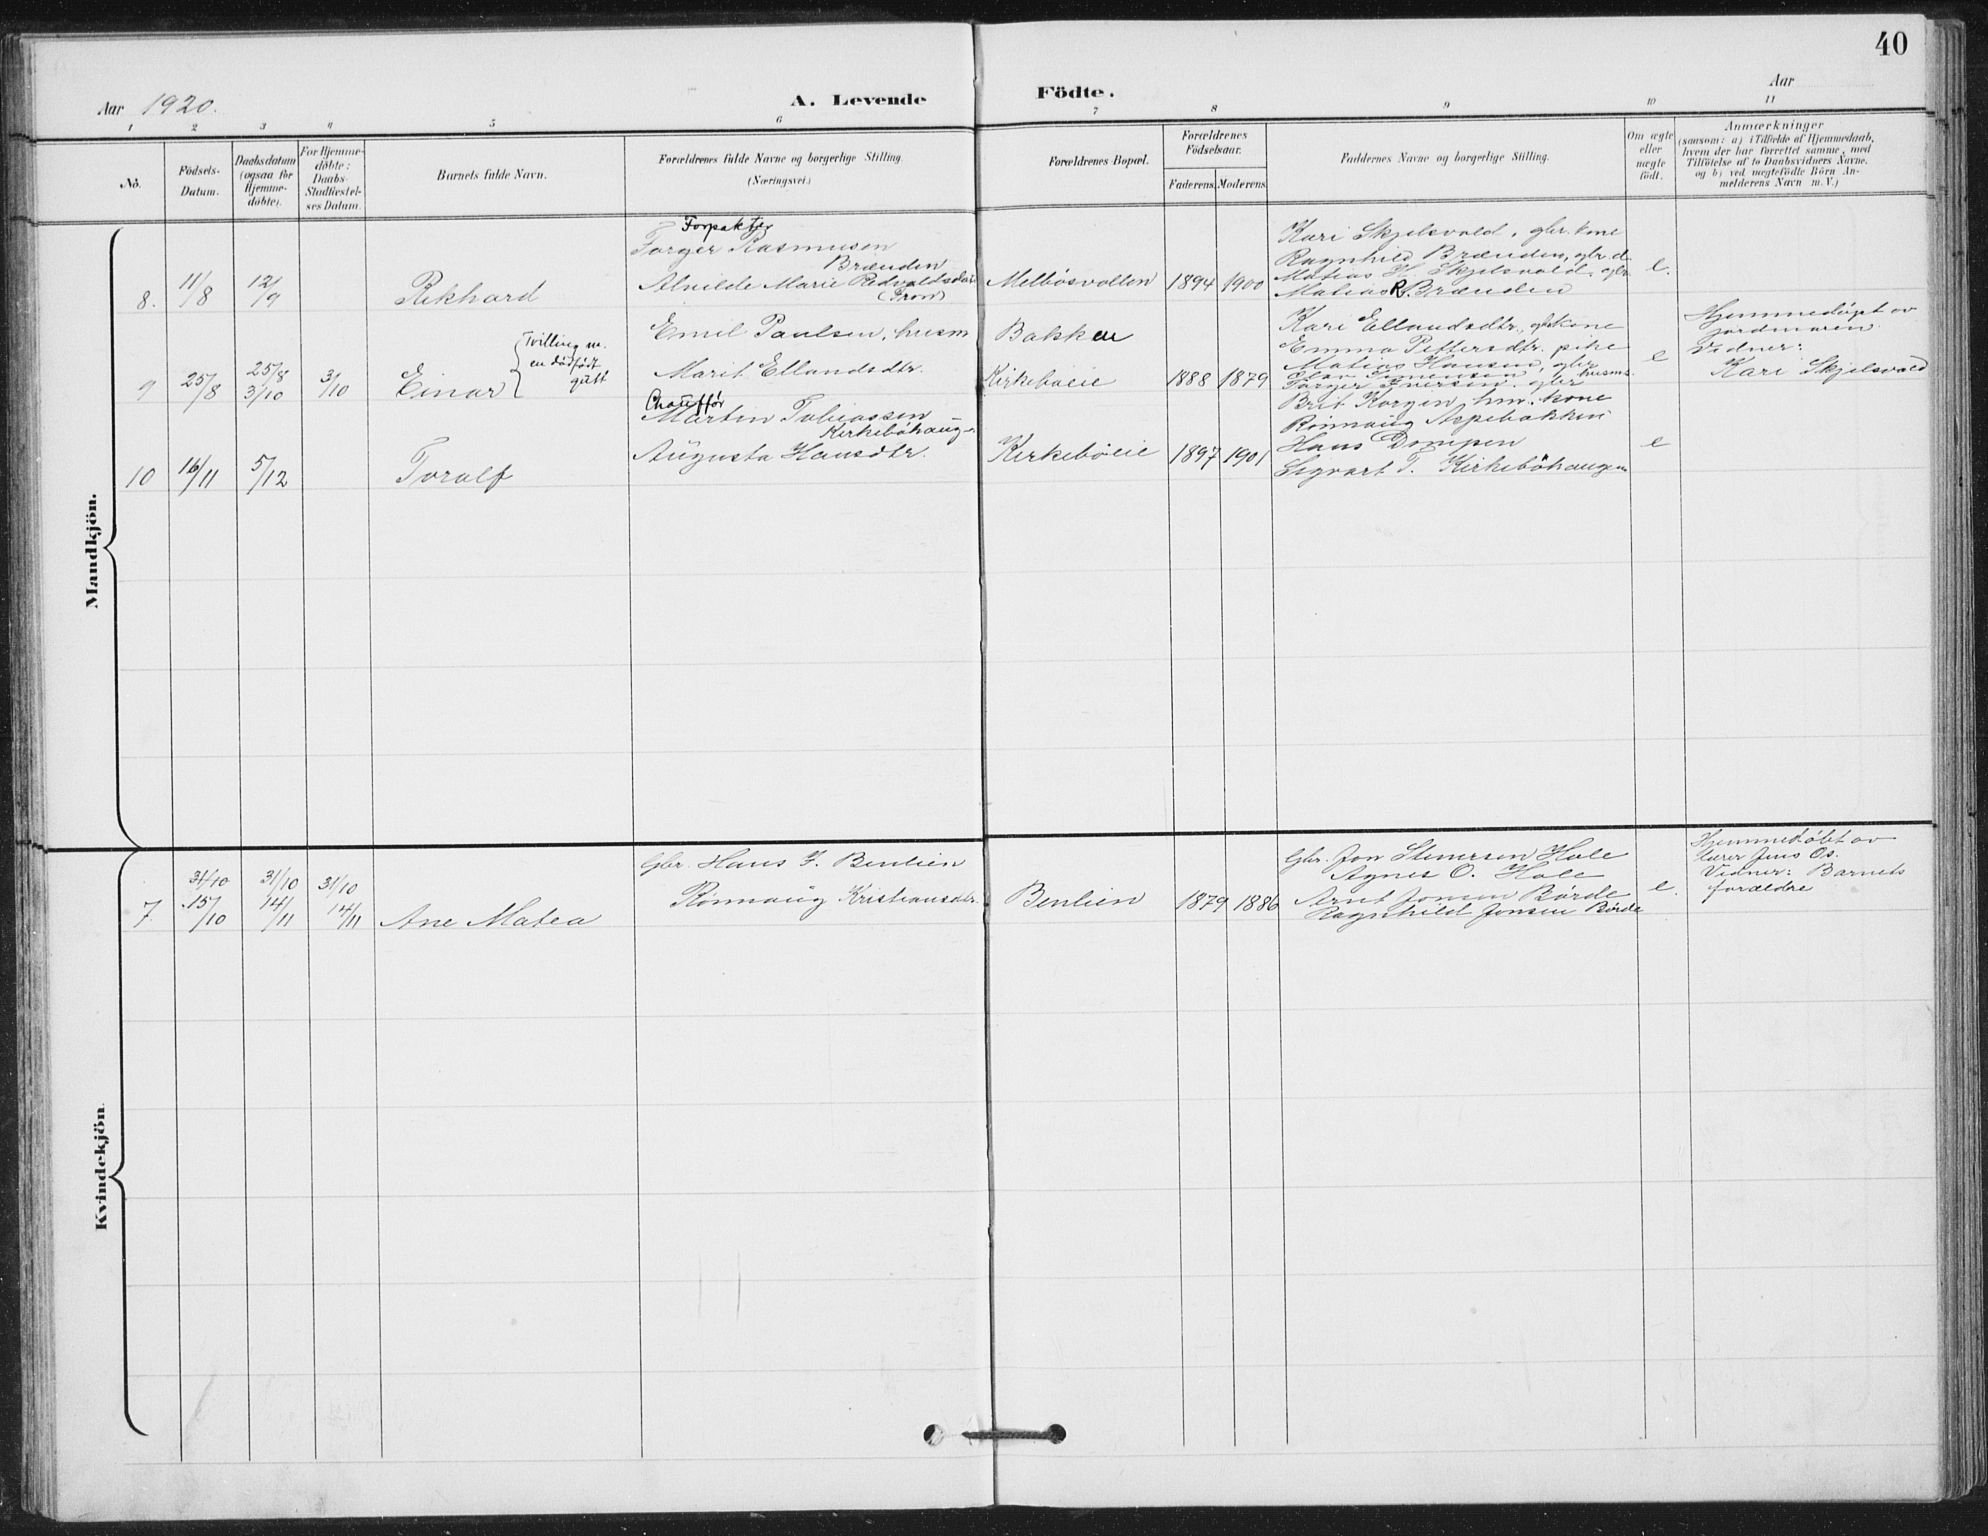 40
Aar 1920.
A. Levende Födte.
Aar
1 2 3 4 5 6 7 8 9 10 11
No.
Födsels-Datum.
Daabsdatum (ogsaa for Hjemme-döbte).
For Hjemme-döbte: Daabs-Stadfæstel-ses Datum.
Barnets fulde Navn.
Forældrenes fulde Navne og borgerlige Stilling.
(Næringsvei.)
Forældrenes Bopæl.
Forældrenes Födselsaar.
Faderens. Moderens.
Faddernes Navne og borgerlige Stilling.
Om ægte eller uægte födt.
Anmærkninger
(saasom: a) i Tilfælde af Hjemmedaab,
hvem der har forrettet samme, med
Tilföielse af to Daabsvidners Navne.
og b) ved uægtefödte Börn An-
melderens Navn m. V.)
Mandkjön.
8. 11/8 12/9 Rikhard
Forpakter
Torger Rasmusen
Brænden
Alvilde Marie
(Fron)
Melbösvollen 1894 1900
Kari Skjelsvold, gbr. kone
Ragnhild Brænden, gbr. d.
Matias H. Skjelsvold, gbr.
Matias R. Brænden
e.
9 25/8 25/8 3/10 3/10 Einar
Tvilling m.
en dödfödt
gutt
Emil Paulsen, husm
Marit Ellandsdtr.
Bakken
Kirkeböeie 1888 1879
Kari Ellandsdtr., gbr kone
Emma Pettersdtr. pike
Matias Hansen, gbr
Simensen, husms.
Torger Iversen. gbr
e
Hjemmedöpt av
jordmoren
Vidner:
Kari Skjelsvold
10 16/11 5/12 Toralf
Chauffør
Martin Tobiassen
Kirkeböhaug-
Augusta Hansdtr.
Kirkeböeie 1897 1901
Brit Korgen, hm. kone
Rönnaug Aspebakken
Hans Dompen
Sigvart T. Kirkeböhaugen
e
Kvindekjön.
7. 31/10 15/10 31/10 14/11 31/10 14/11 Ane Matea
Gbr. Hans J. Benlien
Rönnaug Kristiansdtr.
Benlien 1879 1886
Gbr. Jon Simensen Hole
Agnes O. Hole
Arnt Jonsen Börde
Ragnhild Jonsen Börde
e.
Hjemmedöbt av
lærer Jens Os.
Vidner: Barnets
forældre